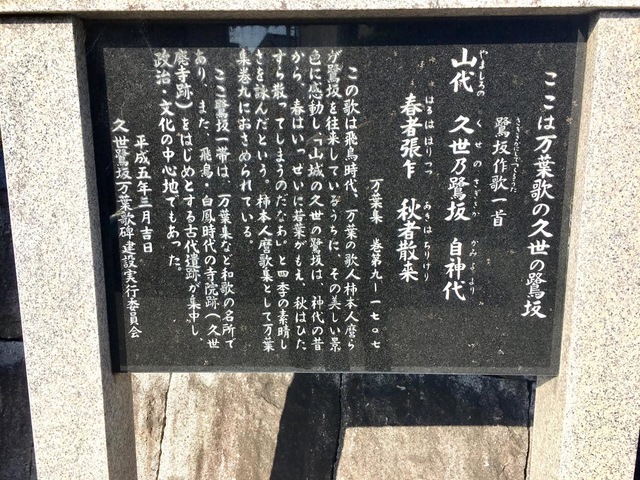 ここは万葉歌の久世の鷺坂
鷺坂作歌一首
さぎさかにしてよめるうた
やましろの くせのさぎさか かみよより
山代 久世乃鷺坂 自神代
はるははりつつ あきはちりけり
春者張乍 秋者散来
万葉集 巻第九ー一七〇七
この歌は飛鳥時代、万葉の歌人柿本人麿ら
が鷺坂を往来しているうちに、その美しい景
色に感動し「山城の久世の鷺坂は、神代の昔
から、春はいっせいに若葉がもえ、秋はひた
すら散ってしまうのだなあ」と四季の素晴し
さを詠んだという。柿本人麿歌集として万葉
集巻九におさめられている。
ここ鷺坂一帯は、万葉集など和歌の名所で
あり、また、飛鳥・白鳳時代の寺院跡(久世
廃寺跡)をはじめとする古代遺跡が集中し、
政治・文化の中心地でもあった。
平成五年三月吉日
久世鷺坂万葉歌碑建設実行委員会